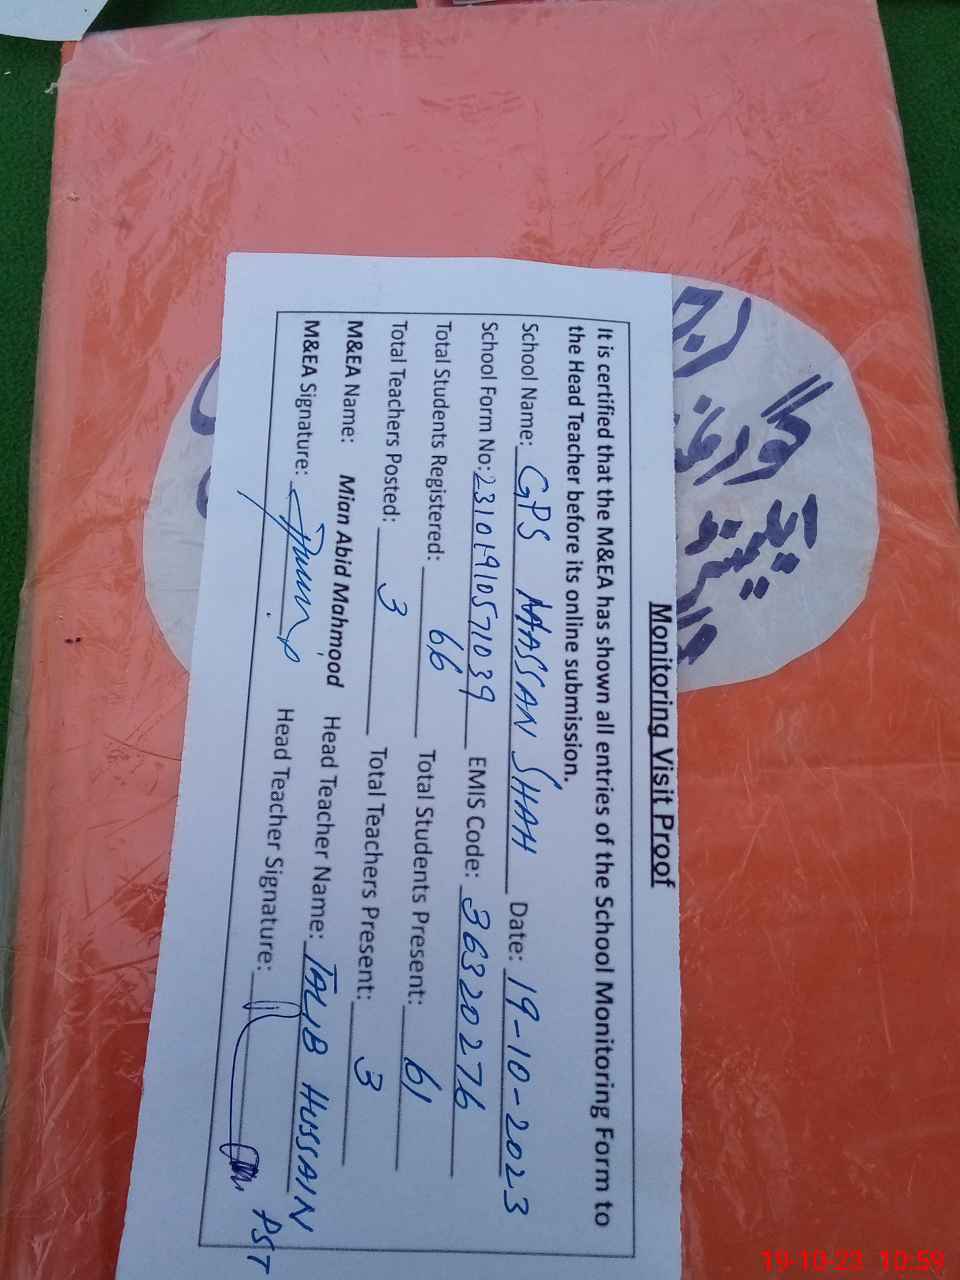 Monitoring Visit Proof
It is certified that the M&EA has shown all entries of the School Monitoring Form to
the Head Teacher before its online submission.
School Name: GPS HASSAN SHAH Date: 19-10-2023
School Form No: 231019105710 39 EMIS Code: 36320276
Total Students Registered: 66 Total Students Present: 61
Total Teachers Posted: 3 Total Teachers Present: 3
M&EA Name: Mian Abid Mahmood Head Teacher Name: TALIB HUSSAIN
M&EA Signature: Head Teacher Signature: PST
19-10-23 10:59